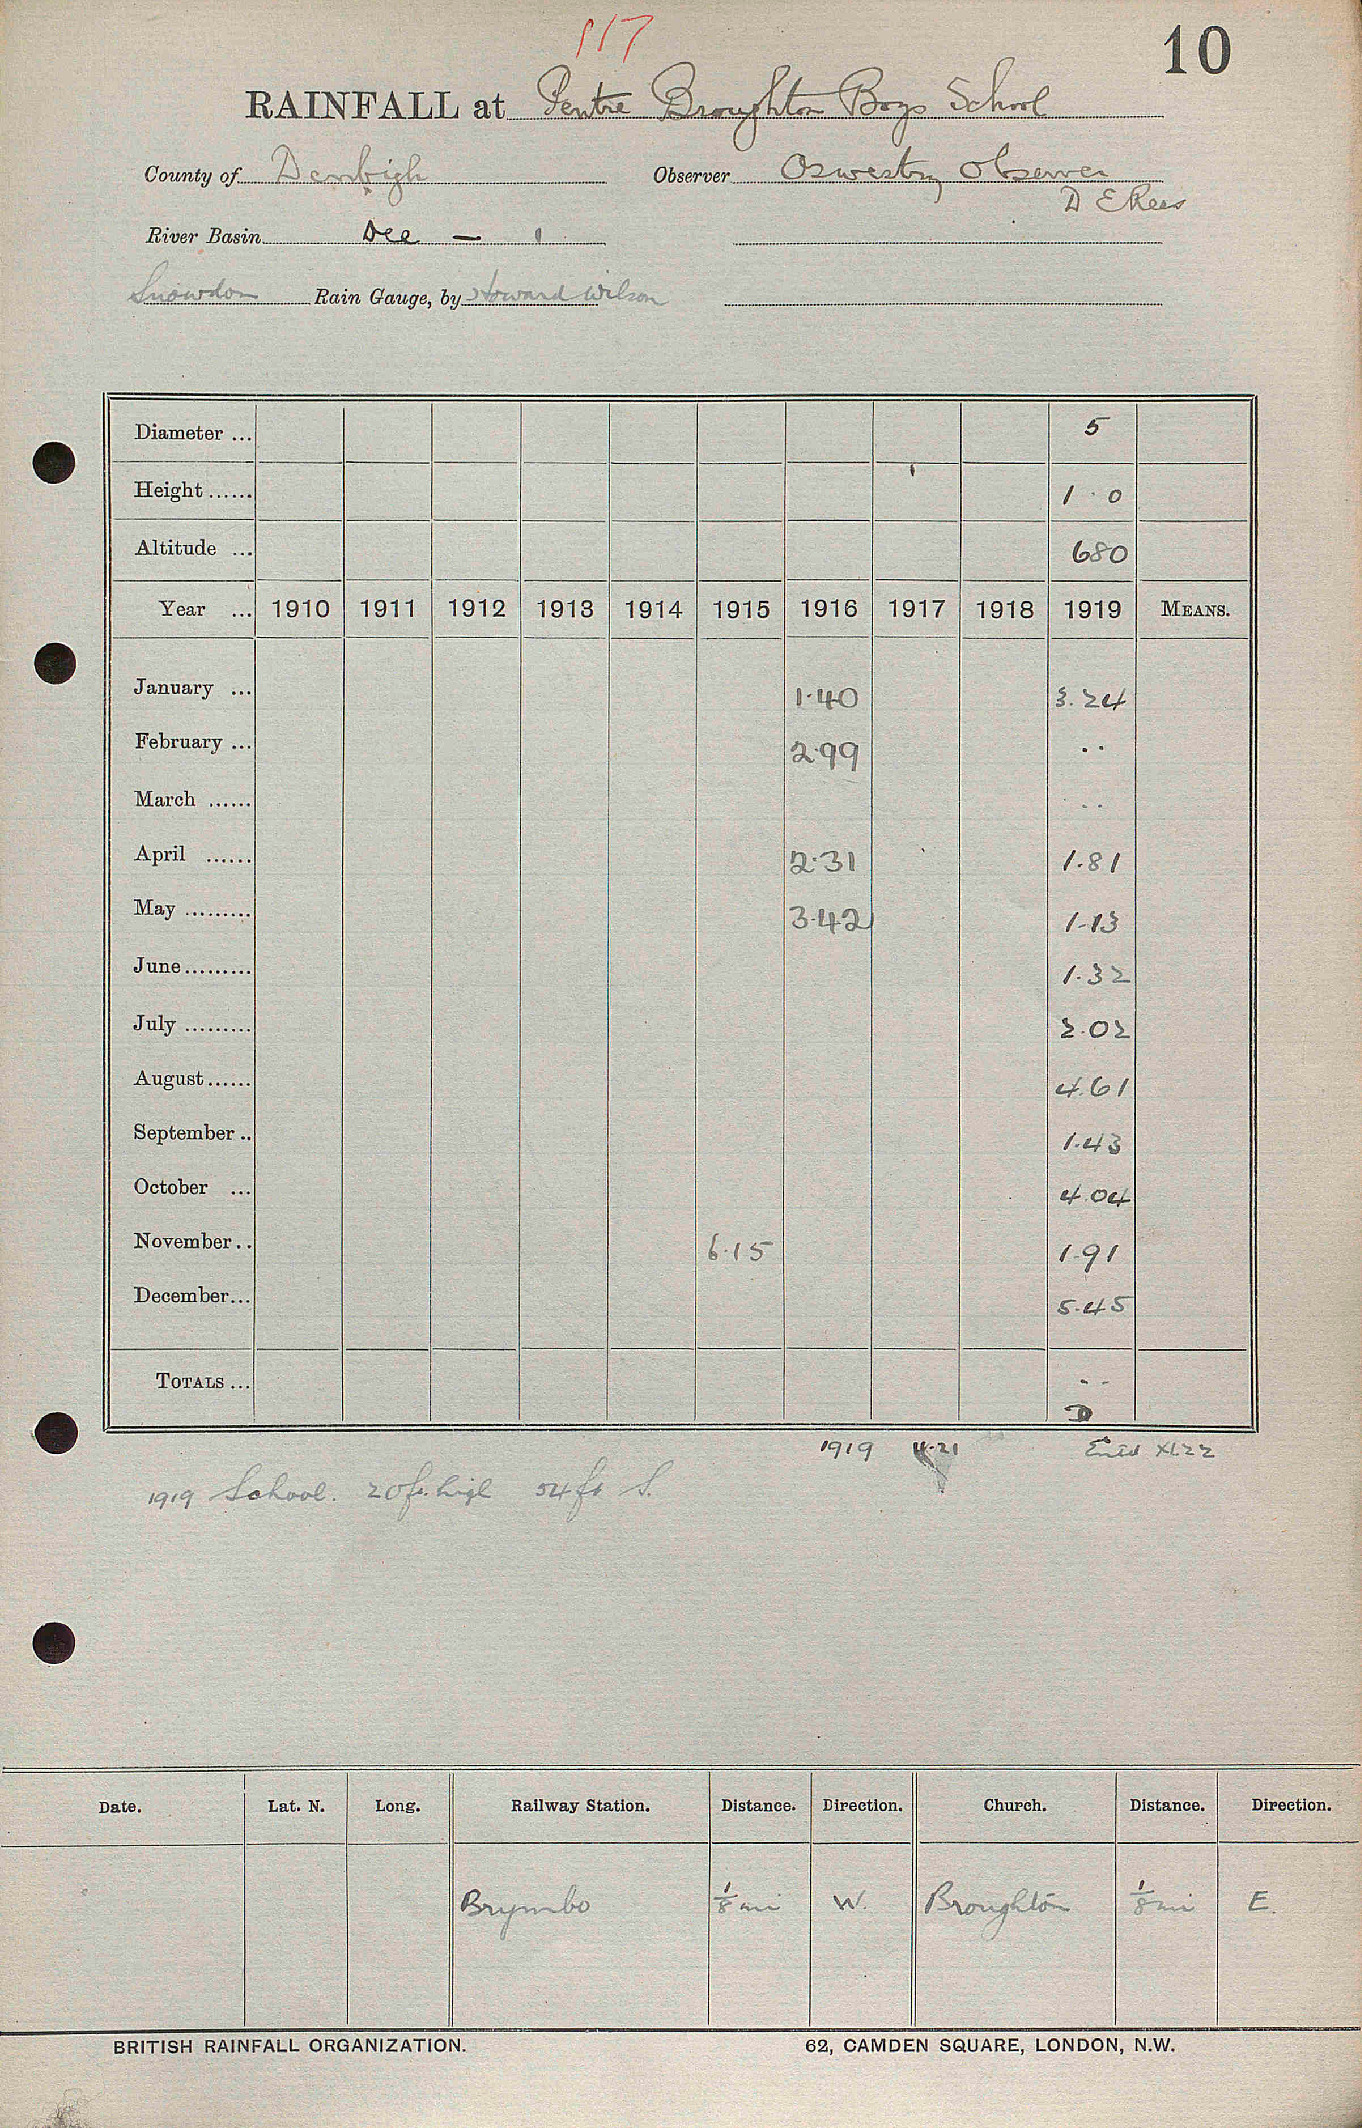 117
10
RAINFALL at Pentre Broughton Boys School
County of Denbigh Observer Oswestry Observer
D E Rees
River Basin Dee — 1
Snowdon Rain Gauge, by Howard Wilson
Diameter ... 5
Height ...... 1 . 0
Altitude ... 680
Year ... 1910 1911 1912 1913 1914 1915 1916 1917 1918 1919 MEANS.
January ... 1.40 3.24
February ... 2.99 . .
March ...... . .
April ...... 2.31 1.81
May ......... 3.42 1.13
June......... 1.32
July ......... 2.02
August...... 4.61
September .. 1.43
October ... 4.04
November .. 6.15 1.91
December... 5.45
TOTALS ... - -
D
1919 4.21 XI.22
1919 School. 20ft. high 54ft S.
Date. Lat. N. Long. Railway Station. Distance. Direction. Church. Distance. Direction.
Brymbo 1/8 mi W. Broughton 1/8 mi E.
BRITISH RAINFALL ORGANIZATION. 62, CAMDEN SQUARE, LONDON, N.W.